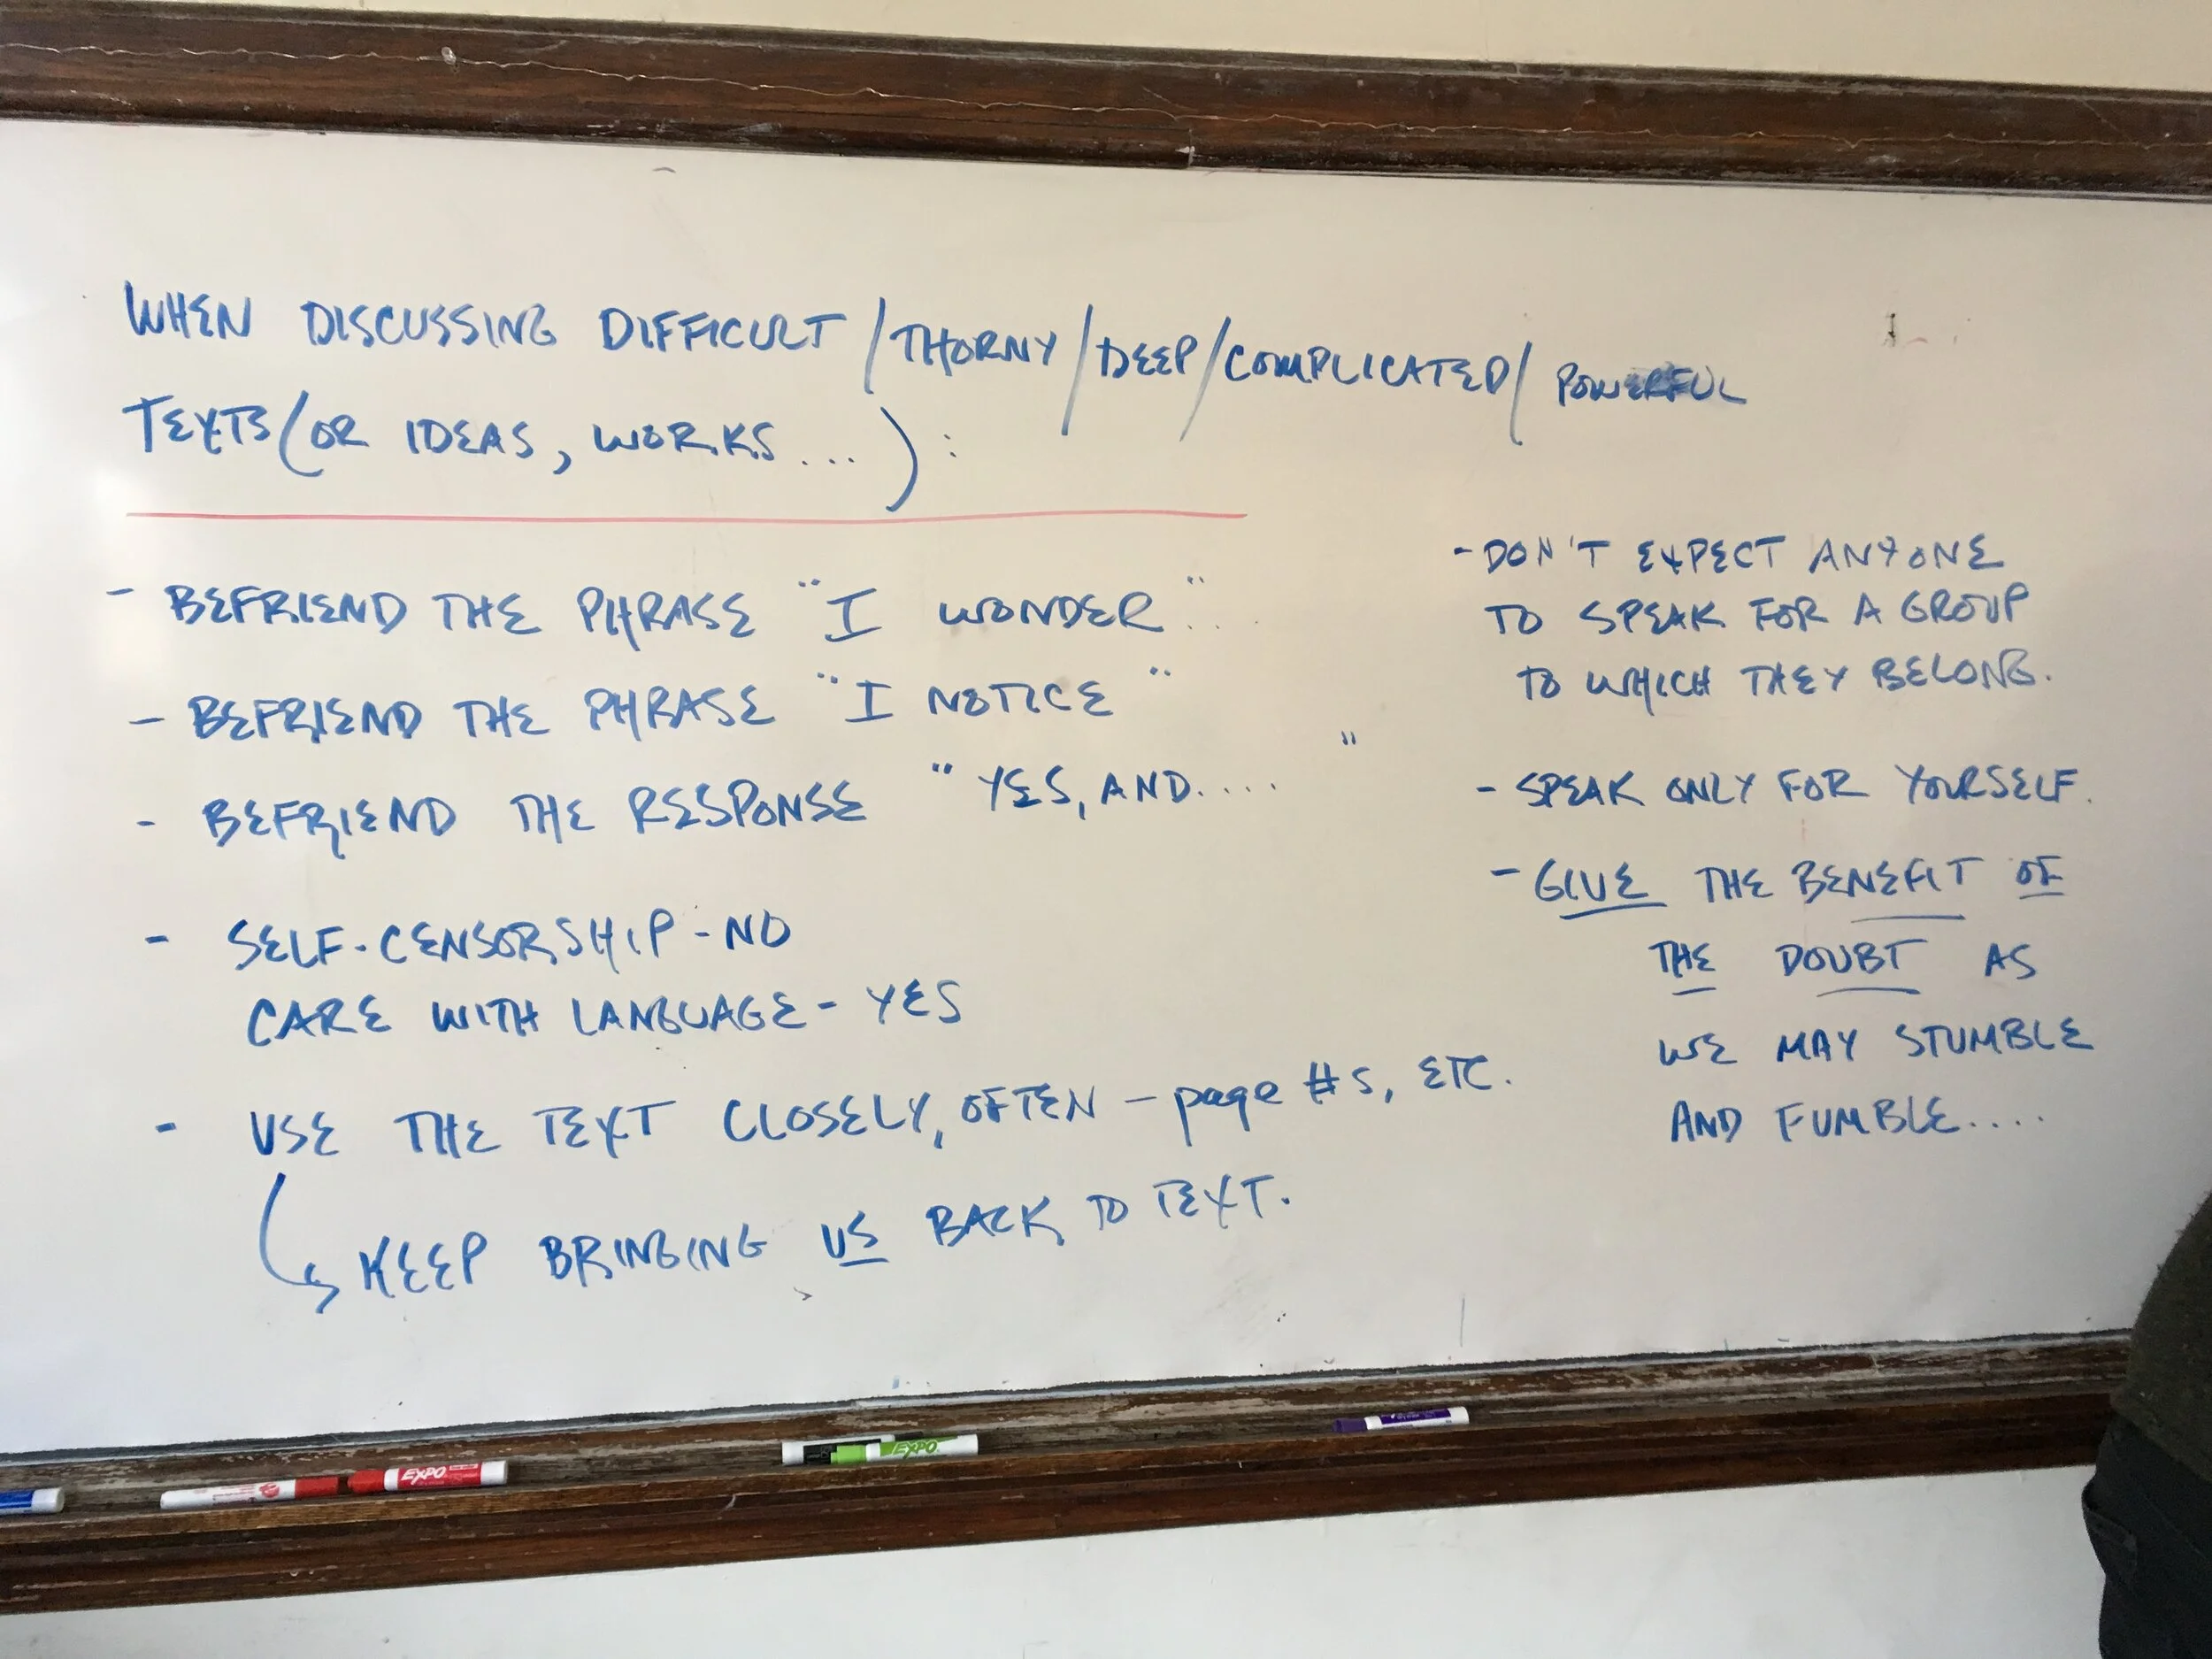 WHEN DISCUSSING DIFFICULT / THORNY / DEEP / COMPLICATED / POWERFUL
TEXTS (OR IDEAS, WORKS ... ) :
- BEFRIEND THE PHRASE "I WONDER" ...
- BEFRIEND THE PHRASE "I NOTICE"
- BEFRIEND THE RESPONSE "YES, AND.... "
- SELF-CENSORSHIP - NO
CARE WITH LANGUAGE - YES
- USE THE TEXT CLOSELY, OFTEN - page #s, ETC.
KEEP BRINGING US BACK TO TEXT.
- DON'T EXPECT ANYONE
TO SPEAK FOR A GROUP
TO WHICH THEY BELONG.
- SPEAK ONLY FOR YOURSELF.
- GIVE THE BENEFIT OF
THE DOUBT AS
WE MAY STUMBLE
AND FUMBLE....
EXPO
EXPO